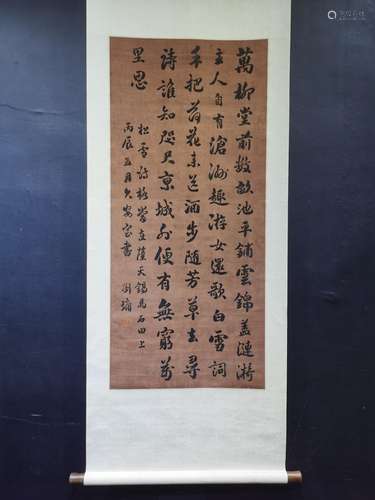 萬柳堂前數畝池平鋪雲錦蓋漣漪
主人自有滄洲趣游女還歌白雪詞
手把荷花來送酒步隨芳草去尋
詩誰知咫尺京城外便有無窮萬
里思
松雪詩格當在薩天錫馬石田上
丙辰五月久安室書 劉墉